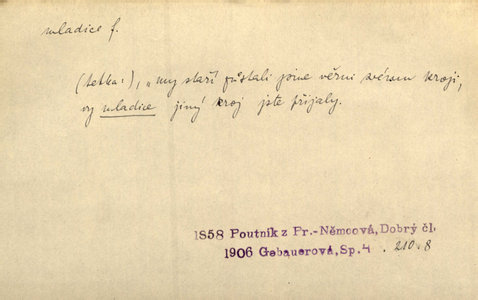 mladice f.
(tetka:), „my staří zůstali jsme věrni svému kroji,
vy mladice jiný kroj jste přijaly.
1858 Poutník z Pr.-Němcová, Dobrý čl.
1906 Gebauerová, Sp. 4 . 210.8